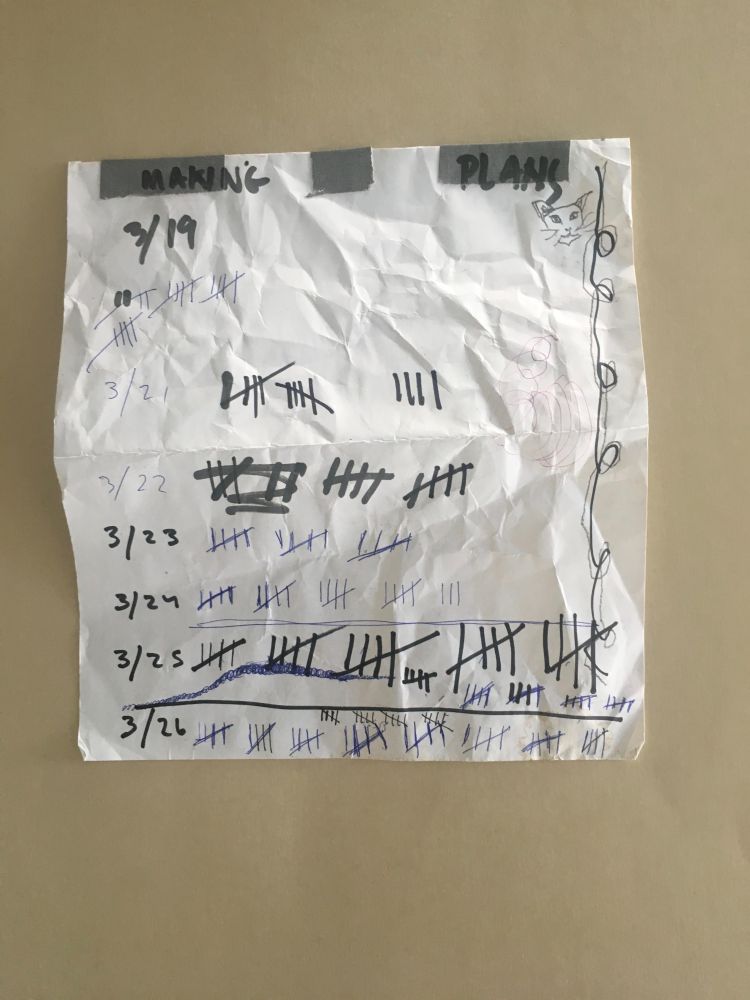 MAKING PLANS
3/19
3/21
3/22
3/23
3/24
3/25
3/26